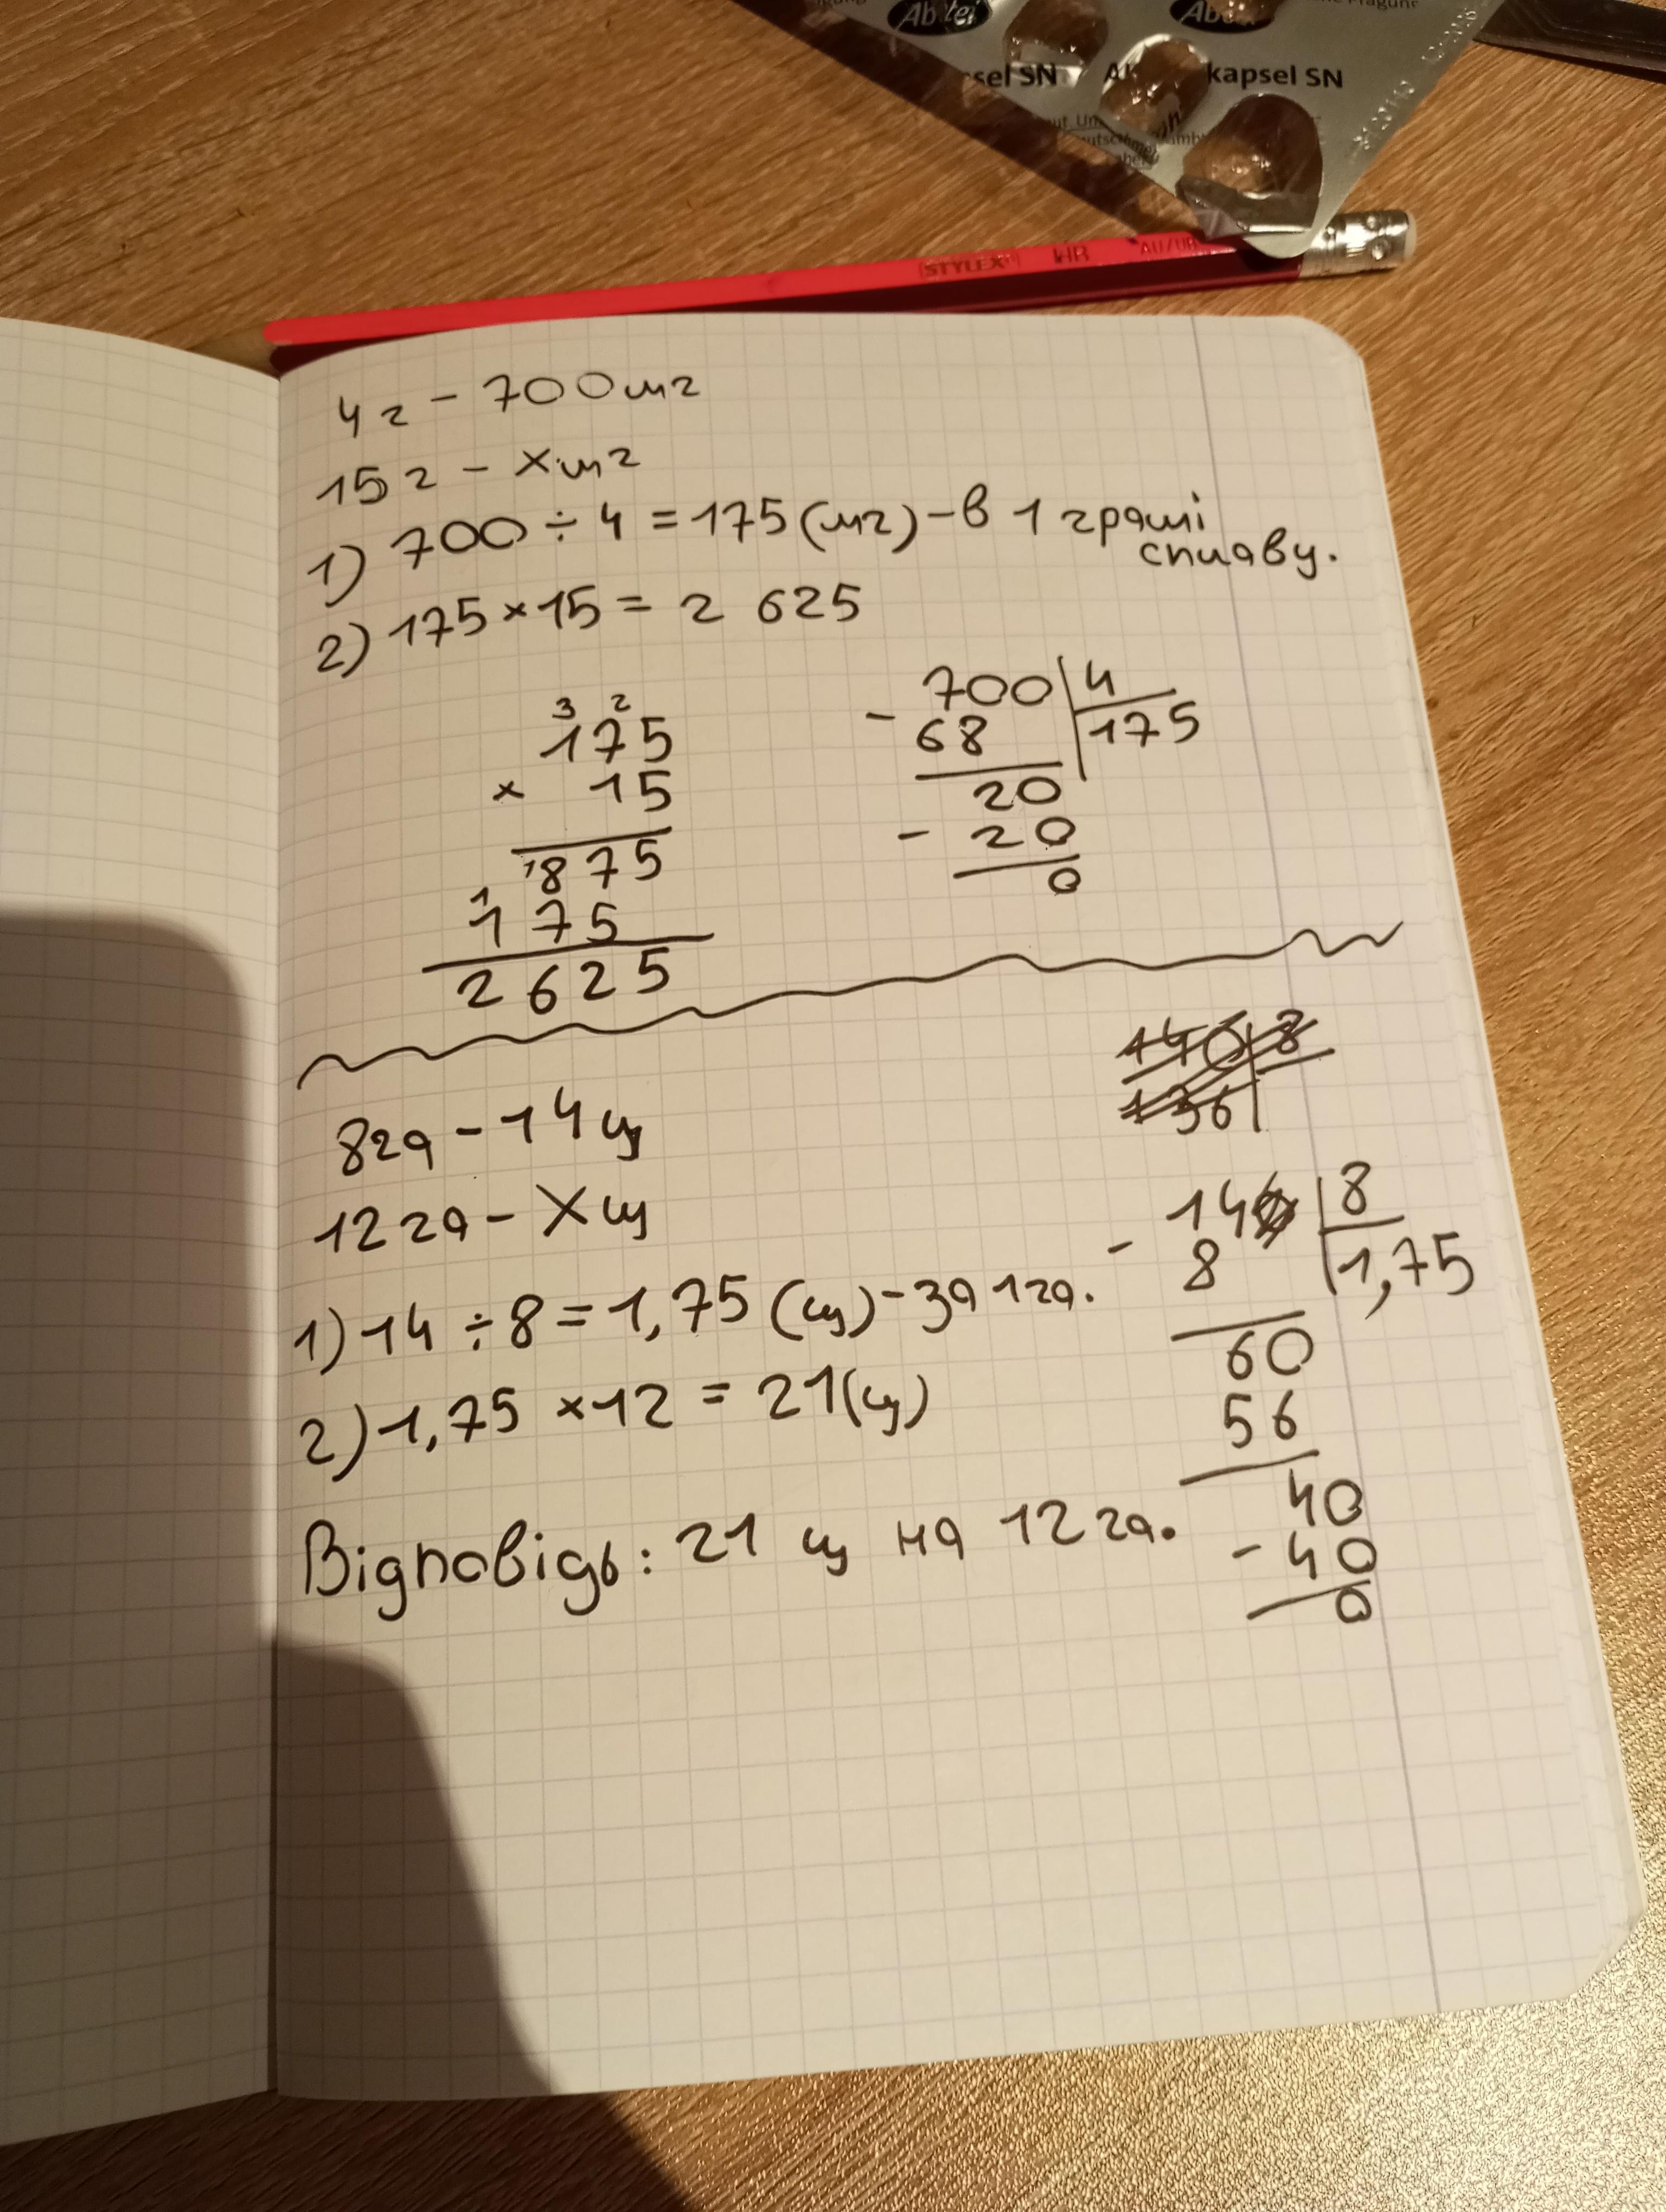 Abtei
Ab
sel SN
kapsel SN
STYLEX HB
4г - 700мг
15г - xмг
1) 700 ÷ 4 = 175 (мг) - в 1 грамі
сплаву.
2) 175 × 15 = 2 625
3 2
175
× 15
1875
1
175
2625
- 700 4
68 175
20
- 20
0
8га - 14ц
12га - Xц
1) 14 ÷ 8 = 1,75 (ц) - за 1га.
2) 1,75 × 12 = 21(ц)
Відповідь: 21 ц на 12 га.
- 14 8
8 1,75
60
56
40
- 40
0